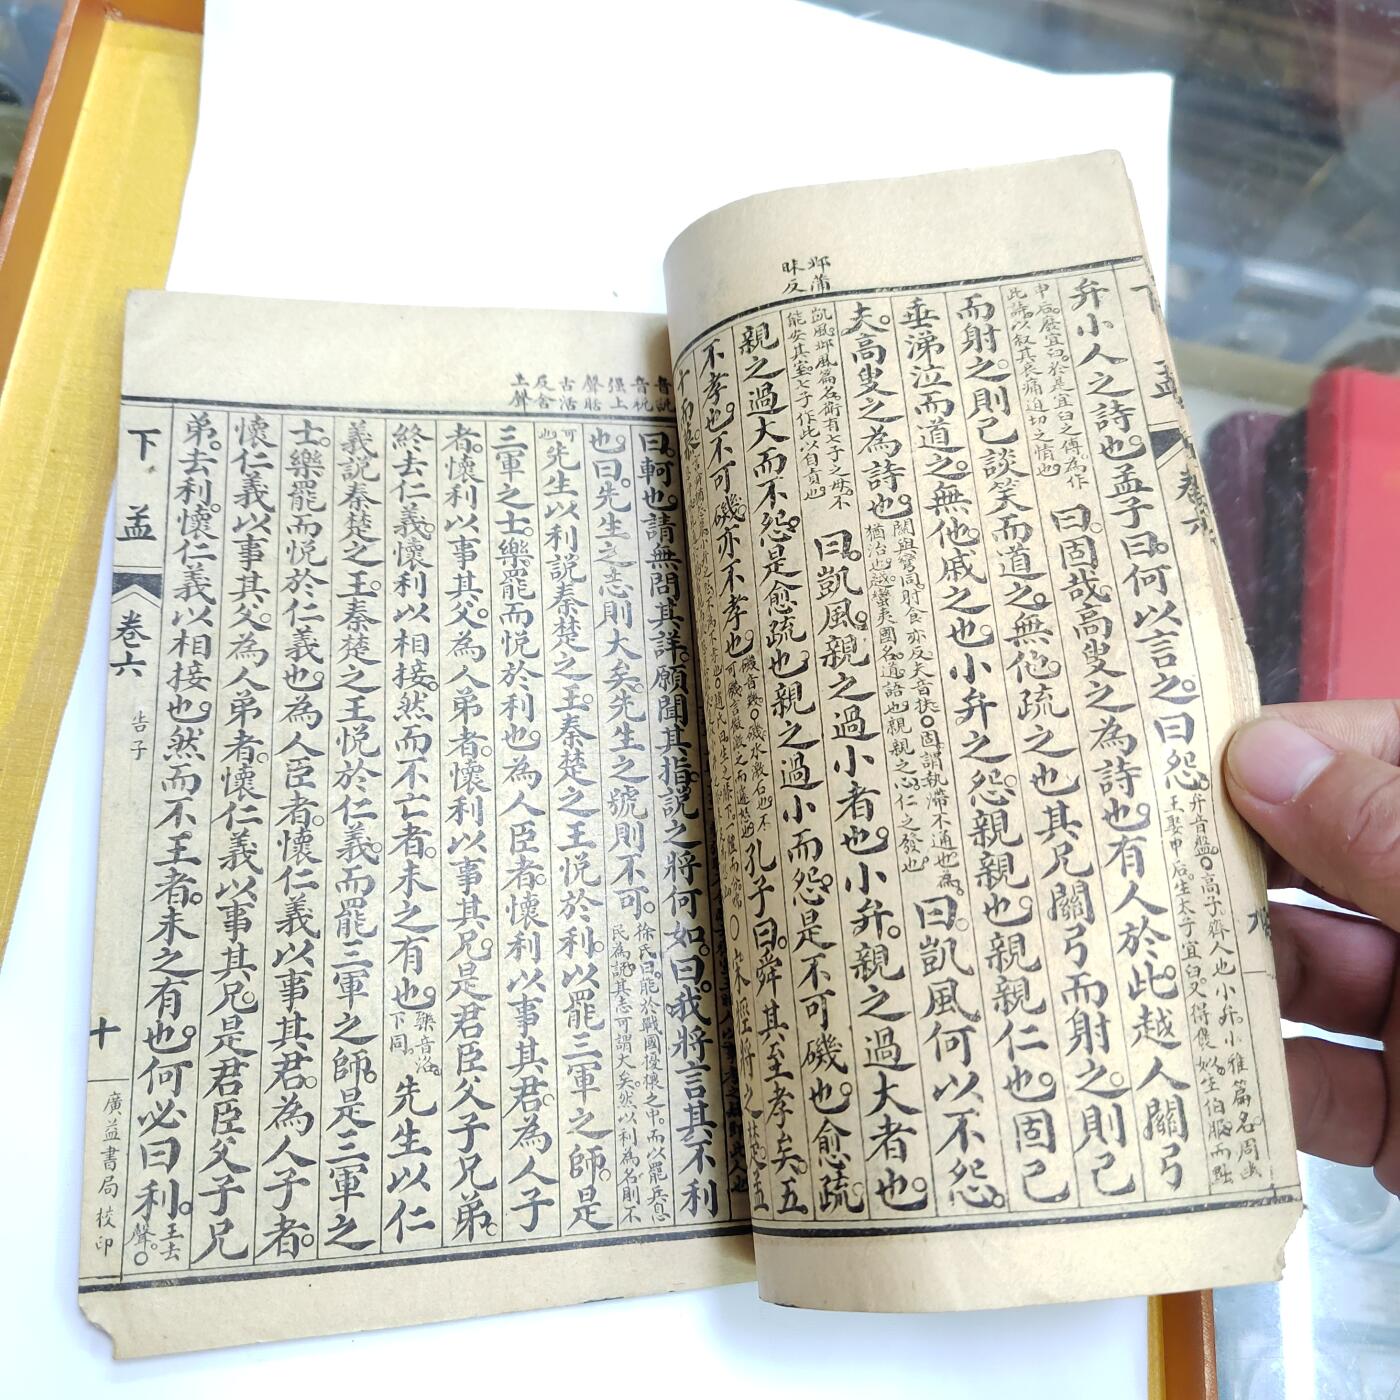 鄁蒲
昧反
弁小人之詩也孟子曰何以言之曰怨
弁音盤○高子齊人也小弁小雅篇名周幽
王娶申后生太子宜臼又得褒姒生伯服而黜
申后廢宜臼於是宜臼之傅為作
此詩以叙其哀痛迫切之情也
曰固哉高叟之為詩也有人於此越人關弓
而射之則己談笑而道之無他疏之也其兄關弓而射之則己
垂涕泣而道之無他戚之也小弁之怨親親也親親仁也固已
夫高叟之為詩也
關與彎同射食亦反夫音扶○固謂執滯不通也為
猶治也越蠻夷國名道語也親親之心仁之發也
曰凱風何以不怨
凱風鄁風篇名衛有七子之母不
能安其室七子作此以自責也
曰凱風親之過小者也小弁親之過大者也
親之過大而不怨是愈疏也親之過小而怨是不可磯也愈疏
不孝也不可磯亦不孝也
磯音幾○磯水激石也不
可磯言微激之而遽怒也
孔子曰舜其至孝矣五
十而慕
音說
音稅
強上
聲聒
古活
反舍
上聲
曰軻也請無問其詳願聞其指說之將何如曰我將言其不利
也曰先生之志則大矣先生之號則不可
徐氏曰能於戰國擾攘之中而以罷兵息
民為說其志可謂大矣然以利為名則不
可也
先生以利說秦楚之王秦楚之王悅於利以罷三軍之師是
三軍之士樂罷而悅於利也為人臣者懷利以事其君為人子
者懷利以事其父為人弟者懷利以事其兄是君臣父子兄弟
終去仁義懷利以相接然而不亡者未之有也
樂音洛
下同
先生以仁
義說秦楚之王秦楚之王悅於仁義而罷三軍之師是三軍之
士樂罷而悅於仁義也為人臣者懷仁義以事其君為人子者
懷仁義以事其父為人弟者懷仁義以事其兄是君臣父子兄
弟去利懷仁義以相接也然而不王者未之有也何必曰利
王去
聲○
下孟 卷六 告子 十 廣益書局校印